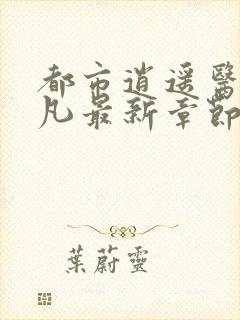 都市逍遥醫
凡最新章節
葉蔚靈